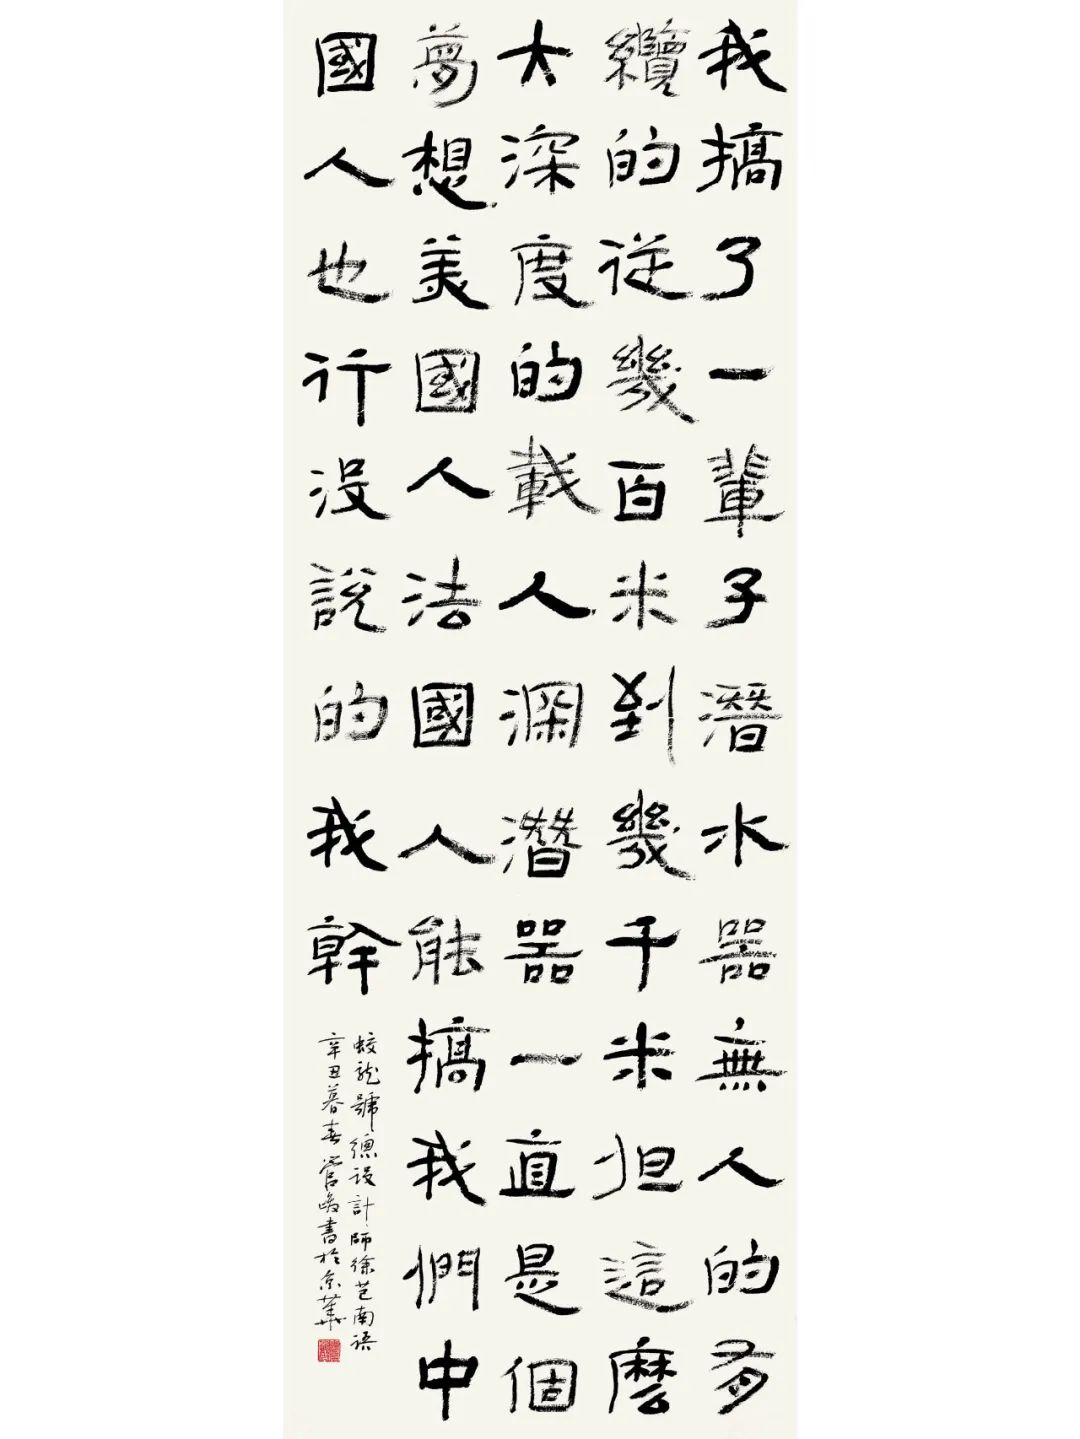 我搞了一輩子潛水器無人的有
纜的從幾百米到幾千米但這麼
大深度的載人深潛器一直是個
夢想美國人法國人能搞我們中
國人也行没說的我幹
蛟龍號總設計師徐芑南語
辛丑暮春管峻書於京華